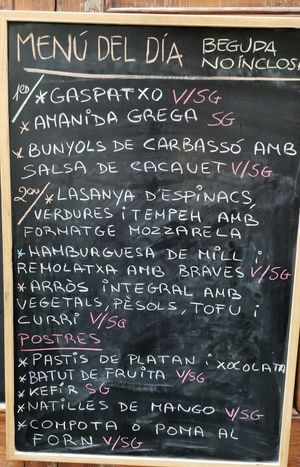 MENÚ DEL DÍA
BEGUDA
NO INCLOSA
1ER/ * GASPATXO V/SG
* AMANIDA GREGA SG
* BUNYOLS DE CARBASSÓ AMB
SALSA DE CACAUET V/SG
2ON/ * LASANYA D'ESPINACS,
VERDURES i TEMPEH AMB
FORMATGE MOZZARELA
* HAMBURGUESA DE MILL i
REMOLATXA AMB BRAVES V/SG
* ARRÒS INTEGRAL AMB
VEGETALS, PÈSOLS, TOFU i
CURRI V/SG
POSTRES
* PASTIS DE PLATAN i XOCOLATA
* BATUT DE FRUITA V/SG
* KEFIR SG
* NATILLES DE MANGO V/SG
* COMPOTA O POMA AL
FORN V/SG